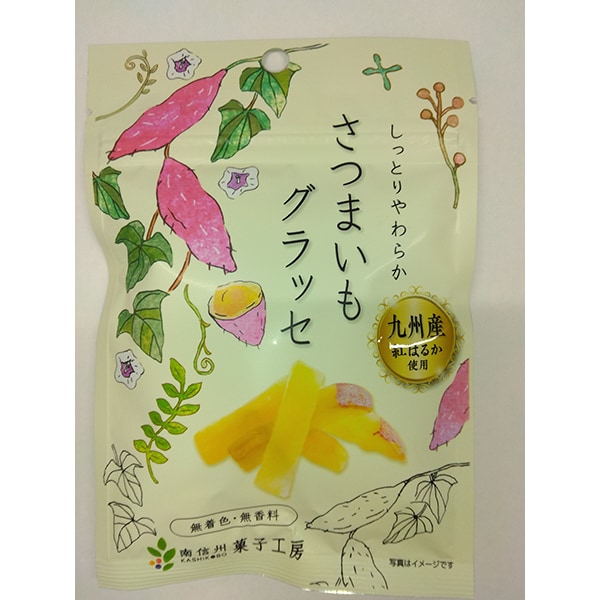 しっとりやわらか
さつまいも
グラッセ
九州産
紅はるか
使用
無着色・無香料
南信州 菓子工房
KASHIKOBO
写真はイメージです